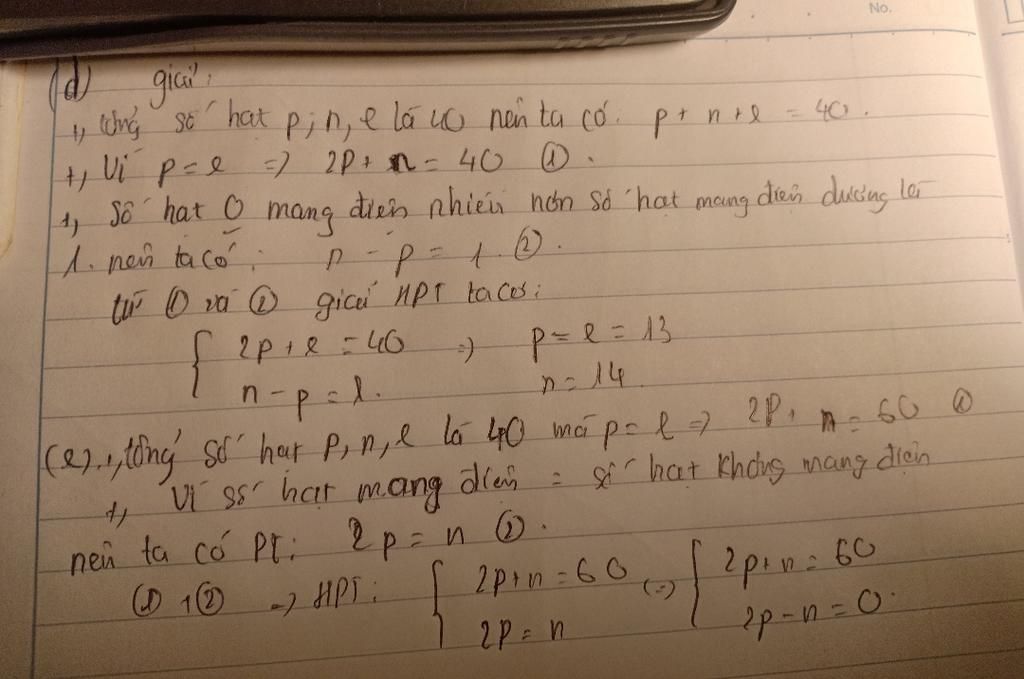 No.
(d) giải:
+, tổng số hạt p, n, e là 40 nên ta có: p + n + e = 40.
+, Vì p = e => 2p + n = 40 ①.
+, Số hạt 0 mang điện nhiều hơn số hạt mang điện dương là
1. nên ta có: n - p = 1. ②.
từ ① và ② giải HPT ta có:
{ 2p + e = 40 => p = e = 13
n - p = 1. n = 14.
(e). +, tổng số hạt p, n, e là 40 mà p = e => 2p + n = 60 ①
+, Vì số hạt mang điện = số hạt không mang điện
nên ta có PT: 2p = n ②.
① + ② => HPT: { 2p + n = 60 (=> { 2p + n = 60
2p = n 2p - n = 0.